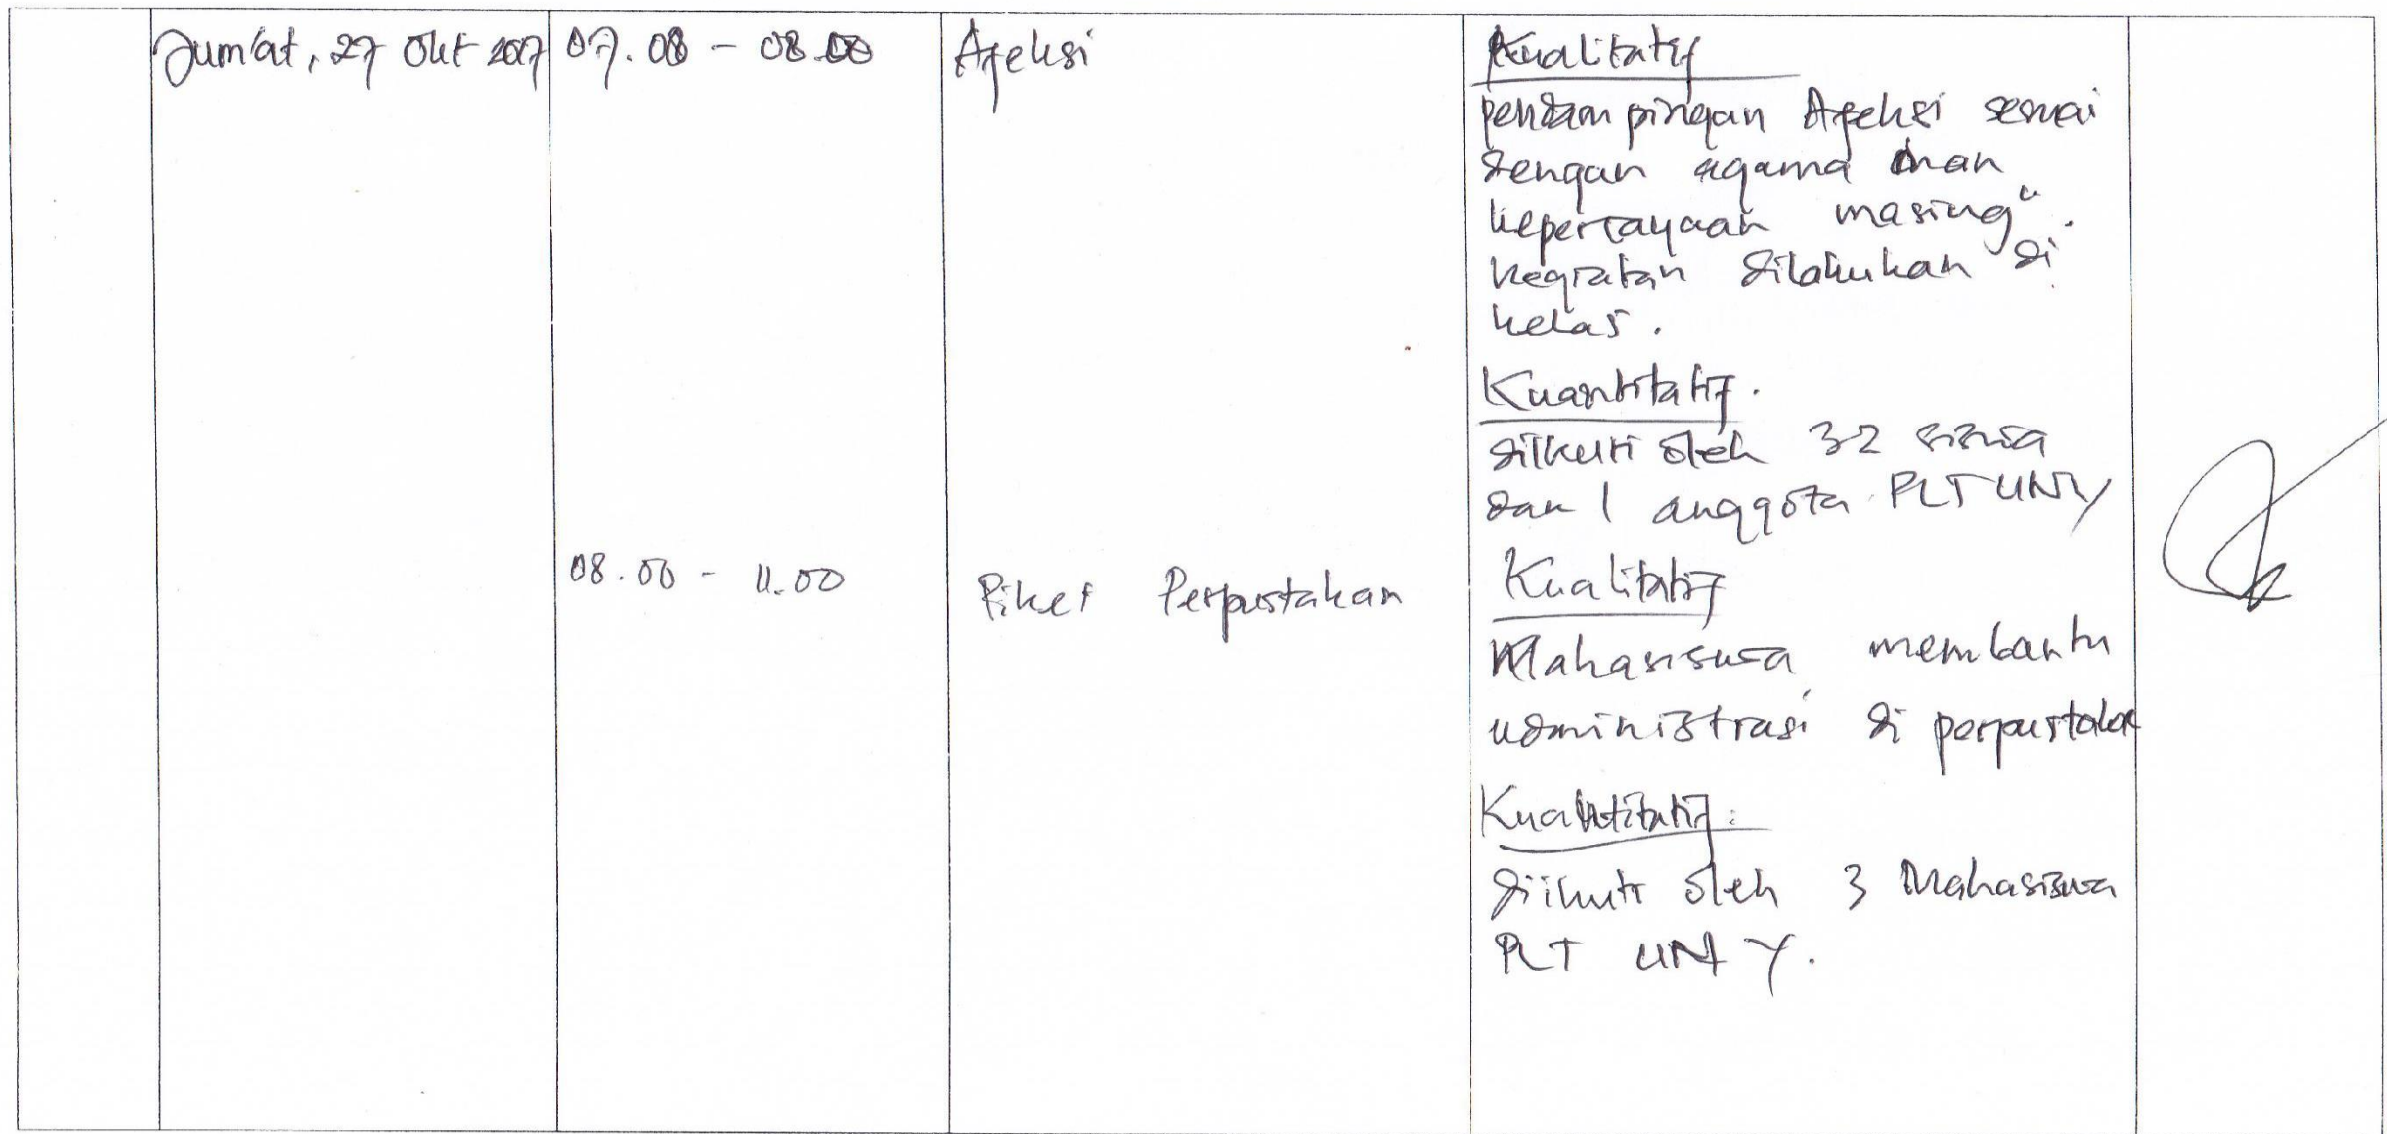 Jum'at, 27 Okt 2017
07.00 - 08.00
Afeksi
Kualitatif
pendampingan Afeksi sesuai
dengan agama dan
kepercayaan masing".
kegiatan dilakukan di
kelas.
Kuantitatif.
diikuti oleh 32 siswa
dan 1 anggota PLT UNY
08.00 - 11.00
Piket Perpustakan
Kualitatif
Mahasiswa membantu
administrasi di perpustakaan
Kuantitatif:
diikuti oleh 3 Mahasiswa
PLT UNY.